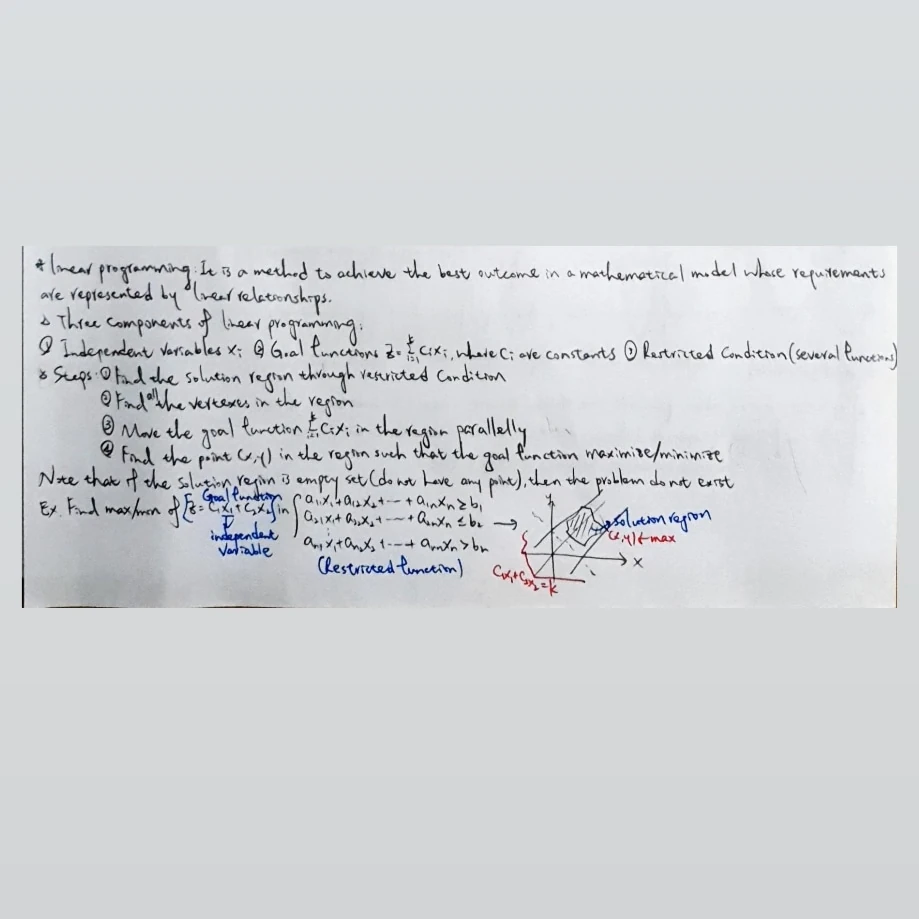 * linear programming. It is a method to achieve the best outcome in a mathematical model whose requirements
are represented by linear relationships.
Three components of linear programming:
① Independent variables xᵢ ② Goal functions z = Σᵢ₌₁ᵏ cᵢxᵢ, where cᵢ are constants ③ Restricted Condition (several functions)
Steps: ① Find the solution region through restricted Condition
② Find all the vertexes in the region
③ Move the goal function Σᵢ₌₁ᵏ cᵢxᵢ in the region parallelly
④ Find the point (x,y) in the region such that the goal function maximize/minimize
Note that if the solution region is empty set (do not have any point), then the problem do not exist
Goal function
Ex. Find max/min of [z = c₁x₁ + c₂x₂] in { a₁₁x₁ + a₁₂x₂ + ⋯ + a₁ₙxₙ ≥ b₁
a₂₁x₁ + a₂₂x₂ + ⋯ + a₂ₙxₙ ≤ b₂ →
⋮
aₙ₁x₁ + aₙ₂x₂ + ⋯ + aₙₙxₙ > bₙ
independent
variable
(Restricted function)
y
solution region
(x,y) ← max
x
c₁x₁ + c₂x₂ = k